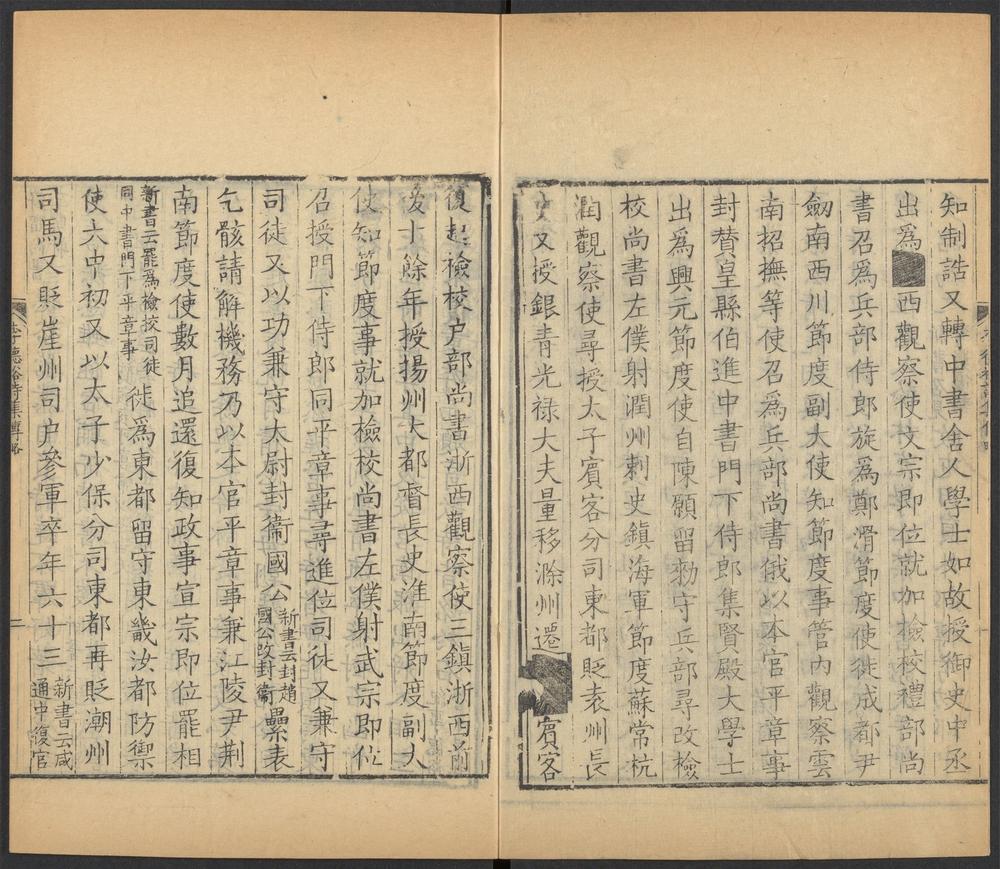 知制誥又轉中書舍人學士如故授御史中丞
出爲西觀察使文宗即位就加檢校禮部尚
書召爲兵部侍郎旋爲鄭滑節度使徙成都尹
劒南西川節度副大使知節度事管内觀察雲
南招撫等使召爲兵部尚書俄以本官平章事
封賛皇縣伯進中書門下侍郎集賢殿大學士
出爲興元節度使自陳願留勑守兵部尋改檢
校尚書左僕射潤州刺史鎮海軍節度蘇常杭
潤觀察使尋授太子賓客分司東都貶袁州長
史又授銀青光祿大夫量移滁州遷賓客
復起檢校户部尚書浙西觀察使三鎮浙西前
後十餘年授揚州大都督長史淮南節度副大
使知節度事就加檢校尚書左僕射武宗即位
召授門下侍郎同平章事尋進位司徒又兼守
司徒又以功兼守太尉封衞國公新書云封趙國公改封衞累表
乞骸請解機務乃以本官平章事兼江陵尹荆
南節度使數月追還復知政事宣宗即位罷相
新書云罷爲檢校司徒同中書門下平章事徙爲東都留守東畿汝都防禦
使大中初又以太子少保分司東都再貶潮州
司馬又貶崖州司户參軍卒年六十三新書云咸通中復官
李德裕詩集傳略
二